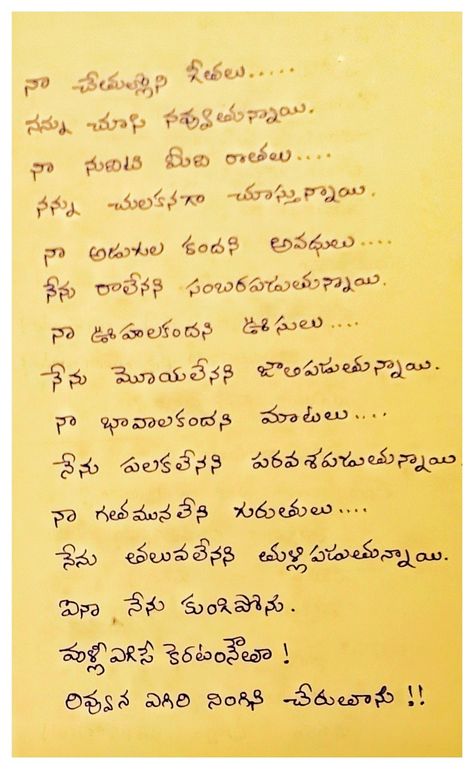 నా చేతుల్లోని గీతలు.....
నన్ను చూసి నవ్వుతున్నాయి.
నా నుదిటి మీది రాతలు....
నన్ను చులకనగా చూస్తున్నాయి.
నా అడుగుల కందని అవధులు....
నేను రాలేనని సంబరపడుతున్నాయి.
నా ఊహలకందని ఊసులు....
నేను మోయలేనని జాలిపడుతున్నాయి.
నా భావాలకందని మాటలు....
నేను పలకలేనని పరవశపడుతున్నాయి
నా గతమునలేని గురుతులు....
నేను తలువలేనని తుళ్లిపడుతున్నాయి.
ఐనా నేను కుంగిపోను.
మళ్లీఎగిసే కెరటంనౌతా!
రివ్వున ఎగిరి నింగిని చేరుతాను!!